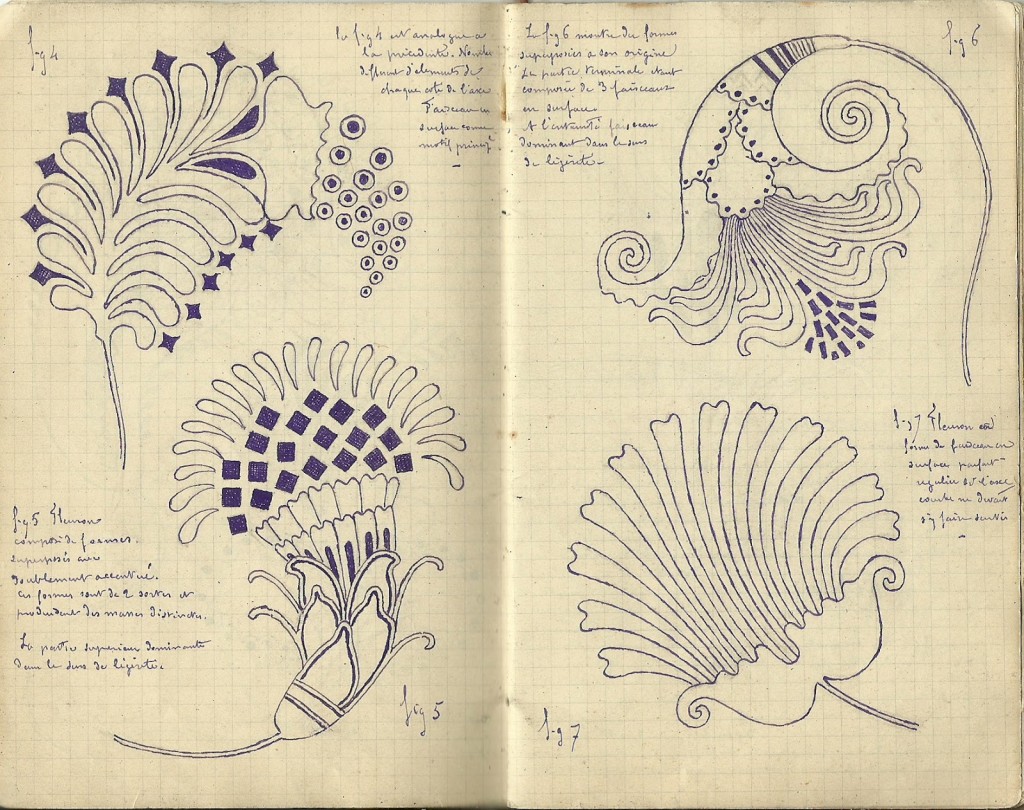 fig 4
la fig 4 est analogue à
la précédente. Nombre
d'éléments de
chaque coté de l'axe
Faisceau en
surface comme
motif princip.
fig 5 Fleuron
composé de formes
superposés axe
doublement accentué.
Ces formes sont de 2 sortes et
produisent des masses distinctes.
La partie superieure dominante
dans le sens de légèreté.
fig 5
La fig 6 montre des formes
superposées a son origine
La partie terminale étant
composée de 3 faisceaux
en surface.
A l'extremité faisceau
dominant dans le sens
de légèreté.
fig 6
fig 7 Fleuron en
forme de faisceau en
surface parfait
regulier et l'axe
courbe ne devait
s'y faire sentir
fig 7